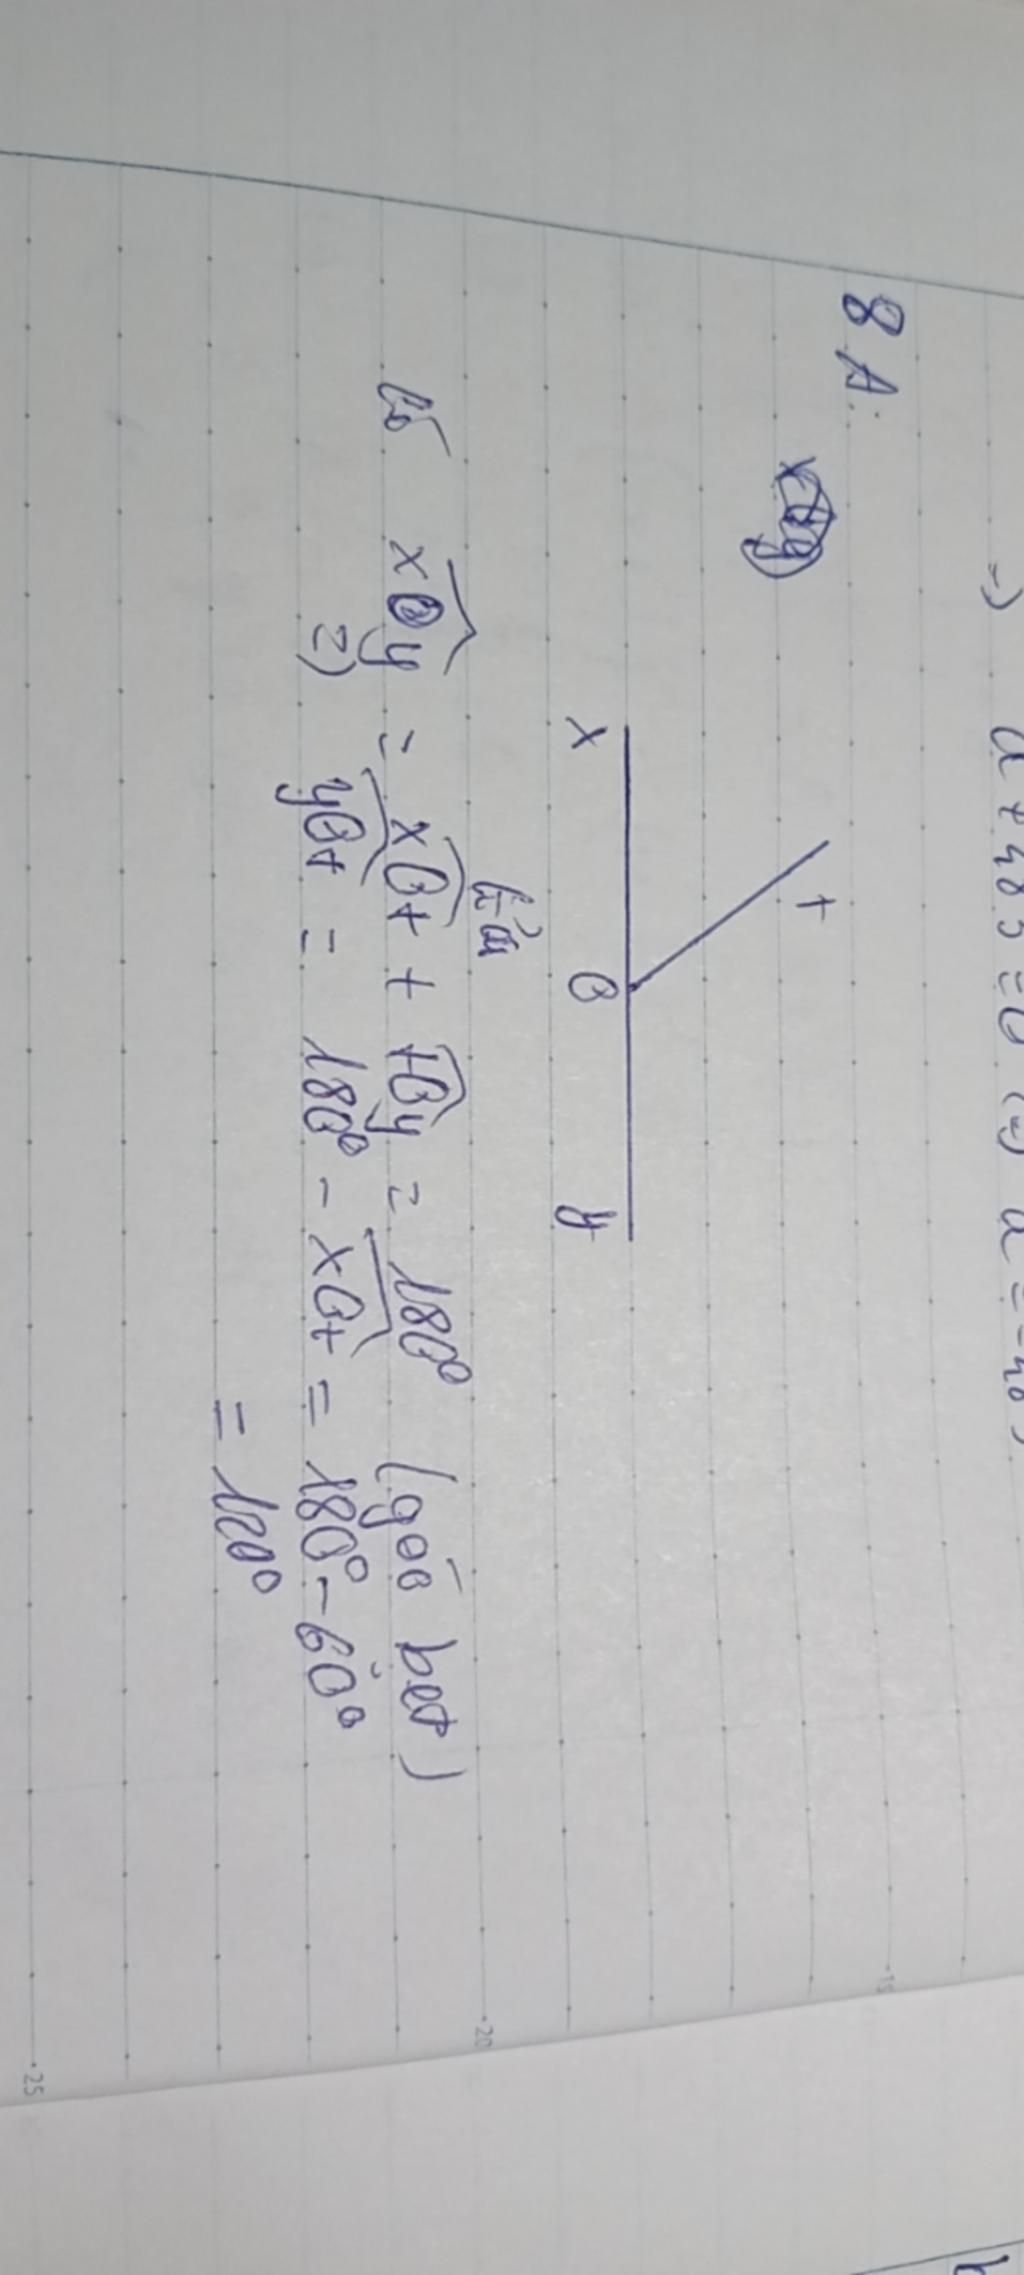 =) a + 485 = 0 (=) a = -485
8A.
x t
O
y
Có xOy = xOt + tOy = 180° (góc bẹt)
=) yOt = 180° - xOt = 180° - 60°
= 120°
15
20
25